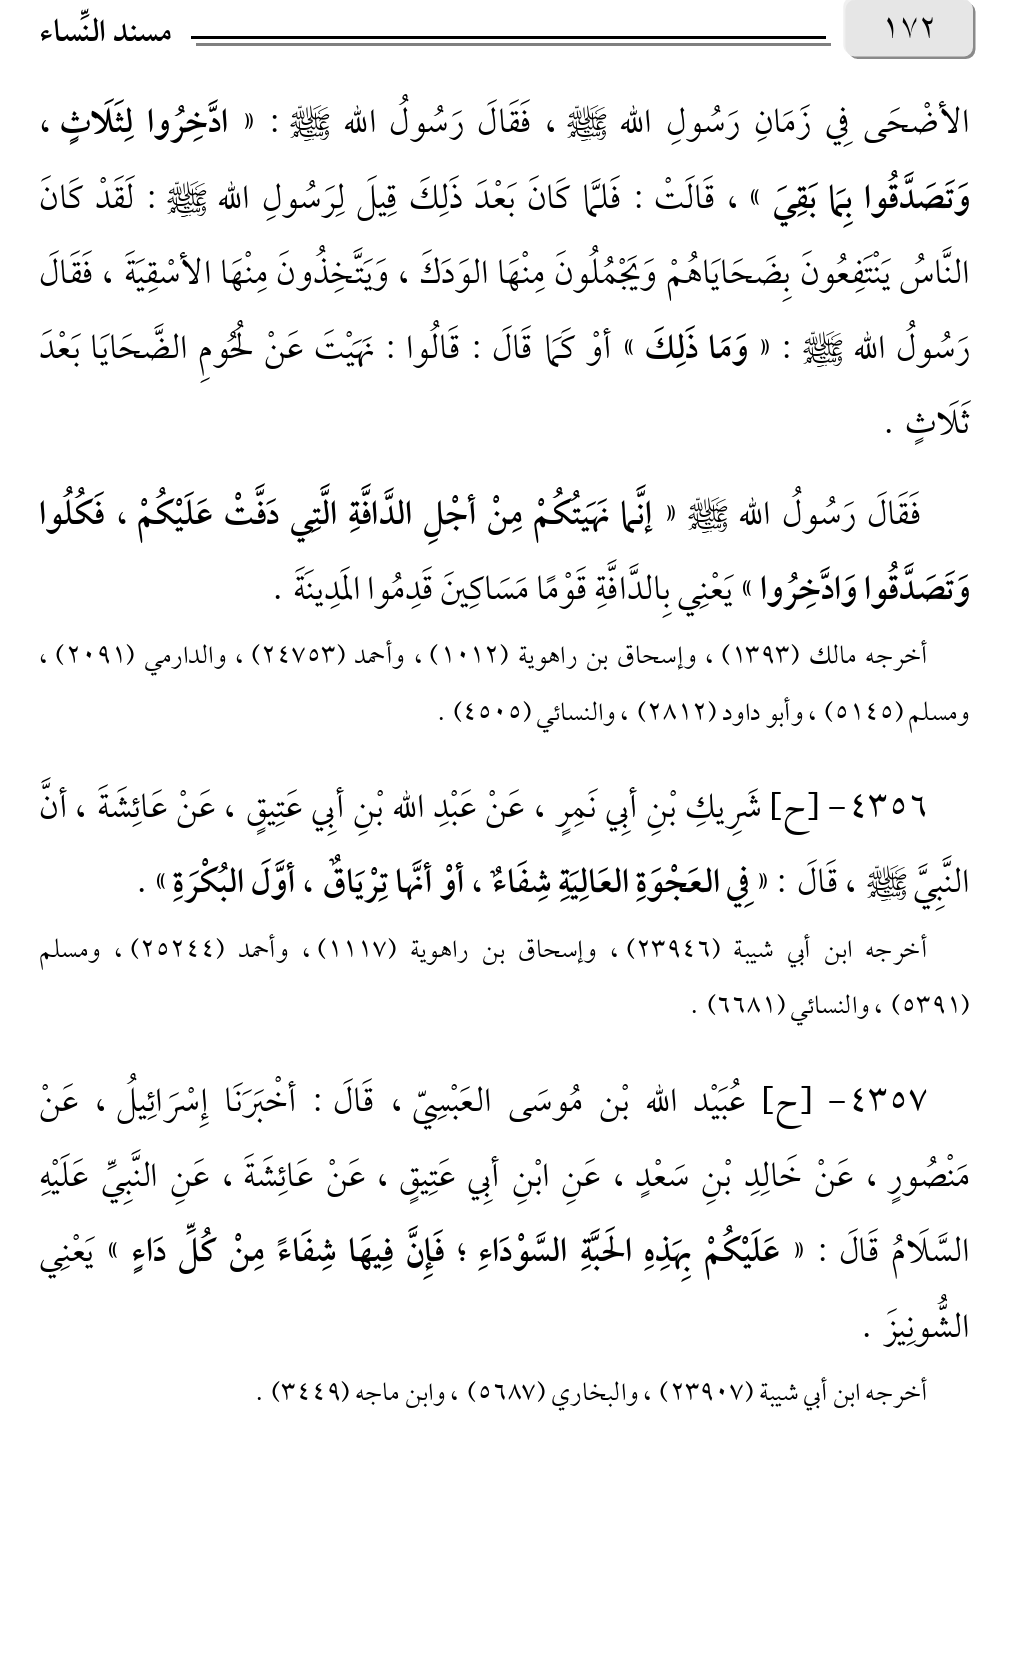 ١٧٢ مسند النِّساء
الأضْحَى فِي زَمَانِ رَسُولِ الله ﷺ ، فَقَالَ رَسُولُ الله ﷺ : « ادَّخِرُوا لِثَلَاثٍ ،
وَتَصَدَّقُوا بِمَا بَقِيَ » ، قَالَتْ : فَلَمَّا كَانَ بَعْدَ ذَلِكَ قِيلَ لِرَسُولِ الله ﷺ : لَقَدْ كَانَ
النَّاسُ يَنْتَفِعُونَ بِضَحَايَاهُمْ وَيَجْمُلُونَ مِنْهَا الوَدَكَ ، وَيَتَّخِذُونَ مِنْهَا الأسْقِيَةَ ، فَقَالَ
رَسُولُ الله ﷺ : « وَمَا ذَلِكَ » أوْ كَمَا قَالَ : قَالُوا : نَهَيْتَ عَنْ لُحُومِ الضَّحَايَا بَعْدَ
ثَلَاثٍ .
فَقَالَ رَسُولُ الله ﷺ « إنَّما نَهَيَتُكُمْ مِنْ أجْلِ الدَّافَّةِ الَّتِي دَفَّتْ عَلَيْكُمْ ، فَكُلُوا
وَتَصَدَّقُوا وَادَّخِرُوا » يَعْنِي بِالدَّافَّةِ قَوْمًا مَسَاكِينَ قَدِمُوا المَدِينَةَ .
أخرجه مالك (١٣٩٣) ، وإسحاق بن راهوية (١٠١٢) ، وأحمد (٢٤٧٥٣) ، والدارمي (٢٠٩١) ،
ومسلم (٥١٤٥) ، وأبو داود (٢٨١٢) ، والنسائي (٤٥٠٥) .
٤٣٥٦- [ح] شَرِيكِ بْنِ أبِي نَمِرٍ ، عَنْ عَبْدِ الله بْنِ أبِي عَتِيقٍ ، عَنْ عَائِشَةَ ، أنَّ
النَّبِيَّ ﷺ ، قَالَ : « فِي العَجْوَةِ العَالِيَةِ شِفَاءٌ ، أوْ أنَّها تِرْيَاقٌ ، أوَّلَ البُكْرَةِ » .
أخرجه ابن أبي شيبة (٢٣٩٤٦) ، وإسحاق بن راهوية (١١١٧) ، وأحمد (٢٥٢٤٤) ، ومسلم
(٥٣٩١) ، والنسائي (٦٦٨١) .
٤٣٥٧- [ح] عُبَيْد الله بْن مُوسَى العَبْسِيّ ، قَالَ : أخْبَرَنَا إسْرَائِيلُ ، عَنْ
مَنْصُورٍ ، عَنْ خَالِدِ بْنِ سَعْدٍ ، عَنِ ابْنِ أبِي عَتِيقٍ ، عَنْ عَائِشَةَ ، عَنِ النَّبِيِّ عَلَيْهِ
السَّلَامُ قَالَ : « عَلَيْكُمْ بِهَذِهِ الحَبَّةِ السَّوْدَاءِ ؛ فَإِنَّ فِيهَا شِفَاءً مِنْ كُلِّ دَاءٍ » يَعْنِي
الشُّونِيزَ .
أخرجه ابن أبي شيبة (٢٣٩٠٧) ، والبخاري (٥٦٨٧) ، وابن ماجه (٣٤٤٩) .